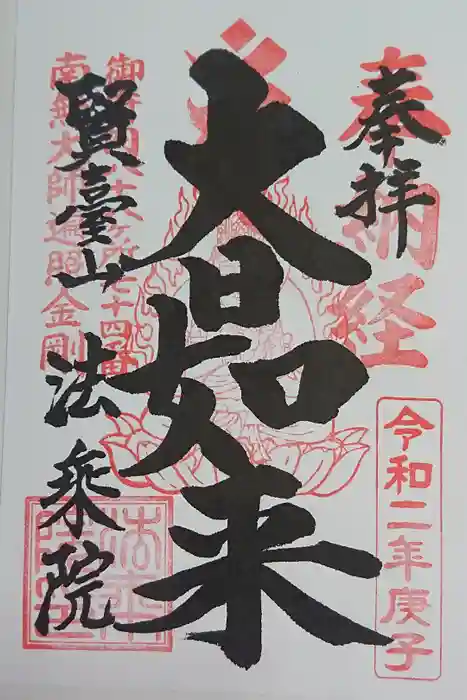 奉拝
奉納経
令和二年庚子
大日如来
御府内八十八ヶ所七十四番
南無大師遍照金剛
賢臺山
法乗院